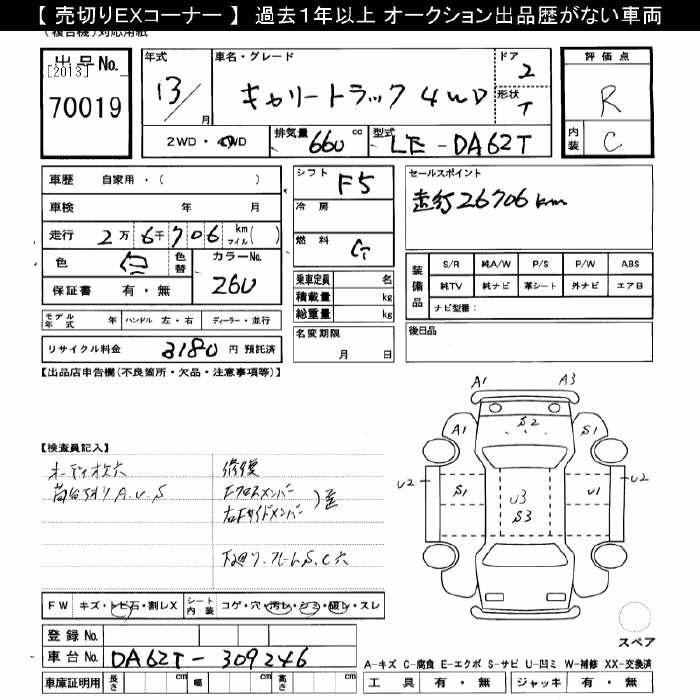 【 売切りEXコーナー 】 過去1年以上 オークション出品歴がない車両
(複合機)対応用紙
出品No.
[2013]
70019
年式
13/
月
車名・グレード
キャリートラック 4WD
ドア
2
形状
T
評価点
R
内装
C
2WD・4WD
排気量
660 cc
型式
LE-DA62T
車歴 自家用・( )
車検 年 月
走行 2万6千706 km マイル( )
色 白 色替
カラーNo.
26U
保証書 有・無
モデル年式 年 ハンドル 左・右 ディーラー・並行
リサイクル料金 3180 円 預託済
シフト
F5
冷房
燃料
G
乗車定員 名
積載量 kg
総重量 kg
名変期限
月 日
セールスポイント
走行26706km
装備品
S/R 純A/W P/S P/W ABS
純TV 純ナビ 革シート 外ナビ エアB
ナビ型番:
後日品
【出品店申告欄(不良箇所・欠品・注意事項等)】
【検査員記入】
オーディオ穴
荷台アオリ A.U.S
修復
Fクロスメンバー
右Fサイドメンバー
)歪
下廻り.フレームS.C穴
A1
A3
A1
S2
S1
U2
S1
U3
S3
U1
U2
FW キズ・トビ石・割レX
シート内装 コゲ・穴・汚レ・シミ・破レ・スレ
登録 No.
車台 No. DA62T-309246
車庫証明用 長さ cm 幅 cm 高さ cm
スペア
A-キズ C-腐食 E-エクボ S-サビ U-凹ミ W-補修 XX-交換済
工具 有・無 ジャッキ 有・無